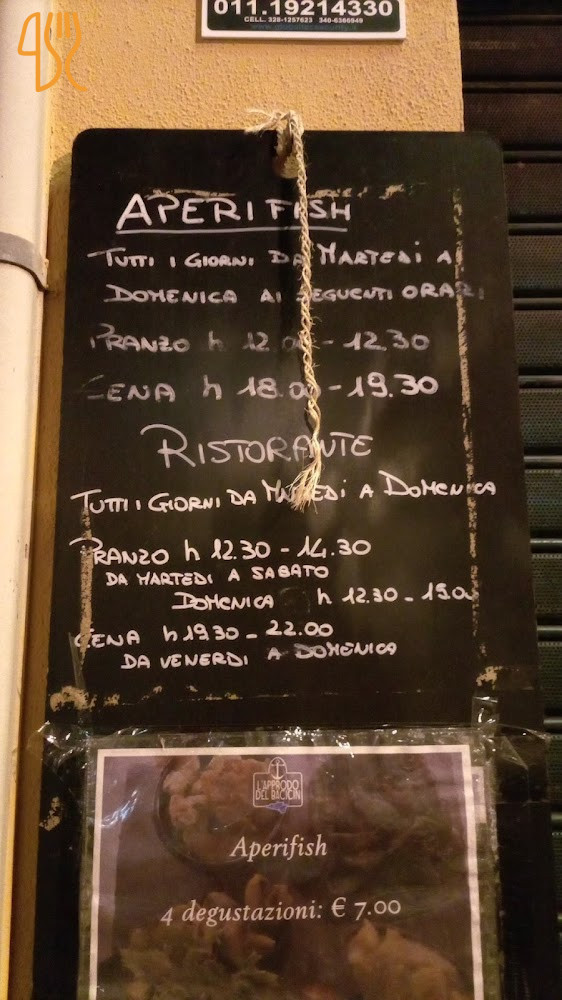 011.19214330
CELL. 328-1257623 340-6366949
APERIFISH
TUTTI I GIORNI DA MARTEDI A
DOMENICA AI SEGUENTI ORARI
PRANZO h 12.00 - 12.30
CENA h 18.00 - 19.30
RISTORANTE
TUTTI I GIORNI DA MARTEDI A DOMENICA
PRANZO h 12.30 - 14.30
DA MARTEDI A SABATO
DOMENICA h 12.30 - 15.00
CENA h 19.30 - 22.00
DA VENERDI A DOMENICA
L'APPRODO
DEL BACICIN
Aperifish
4 degustazioni: € 7.00